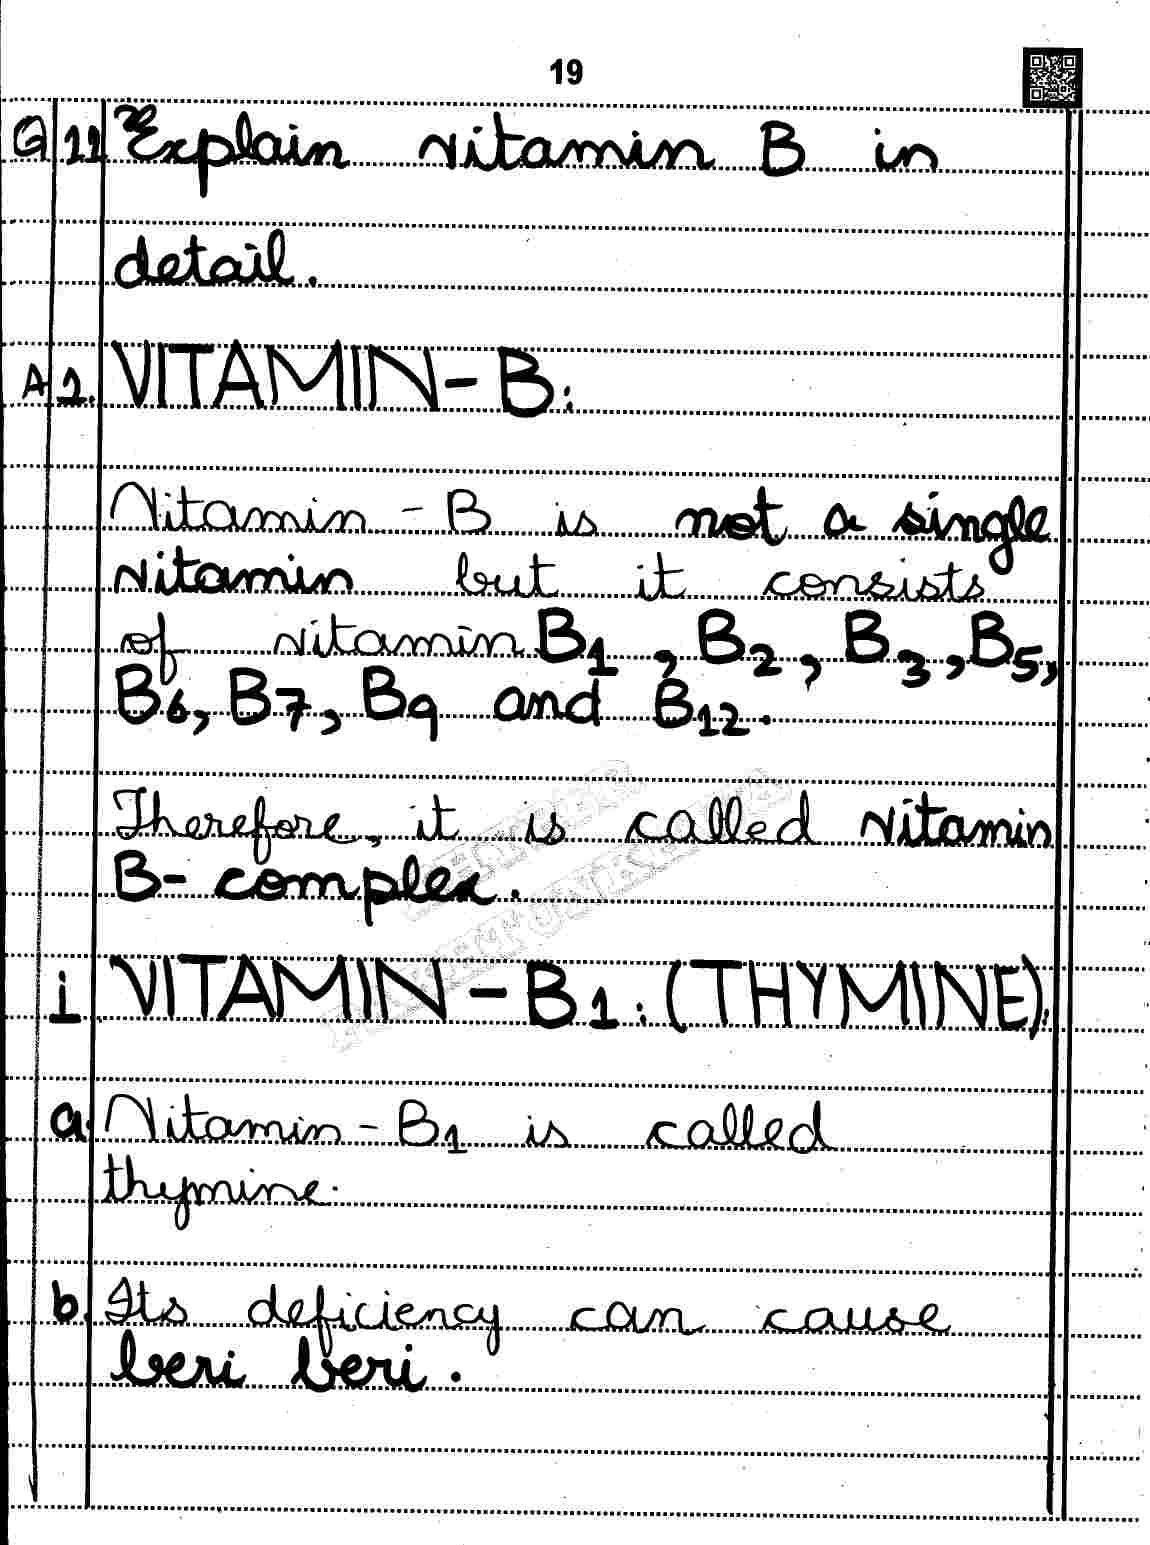 19
Q 11 Explain vitamin B in
detail.
A 1. VITAMIN-B:
Vitamin-B is not a single
vitamin but it consists
of vitamin B1, B2, B3, B5,
B6, B7, B9 and B12.
Therefore, it is called vitamin
B-complex.
i VITAMIN-B1: (THYMINE):
a. Vitamin-B1 is called
thymine.
b. Its deficiency can cause
beri beri.